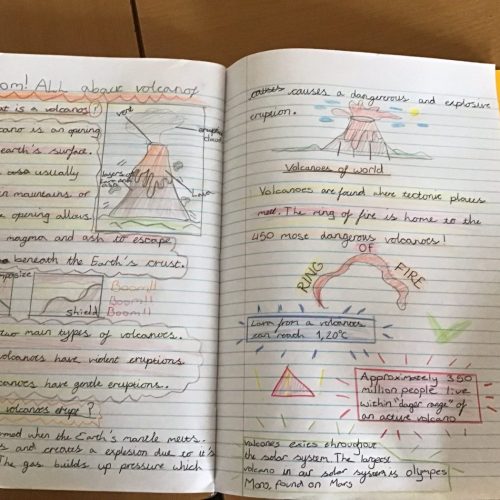 oom! ALL about volcanos
at is a volcanos?
cano is an opening
earth's surface.
usually
mountains or
e opening allows
magma and ash to escape
beneath the Earth's crust.
vent
cloud
layers of
Lava
shield
Boom!!
Boom!!
Boom!!
two main types of volcanoes.
volcanoes have violent eruptions
canoes have gentle eruptions.
volcanoes erupt?
ormed when the Earth's mantle melts.
s and creaves a explosion due to it's
The gas builds up pressure which
causes causes a dangererous and explosive
eruption.
Volcanoes of world
Volcanoes are found where tectonic plates
meet. The ring of fire is home to the
450 most dangerous volcanoes!
RING OF FIRE
Lava from a volcanoes
can reach 1,20°C
Approximately 350
million people live
within "dager range" of
an active volcano
volcanoes exics throughout
the solar system. The largest
volcano in our solar system is olympes
Mons, found on Mars